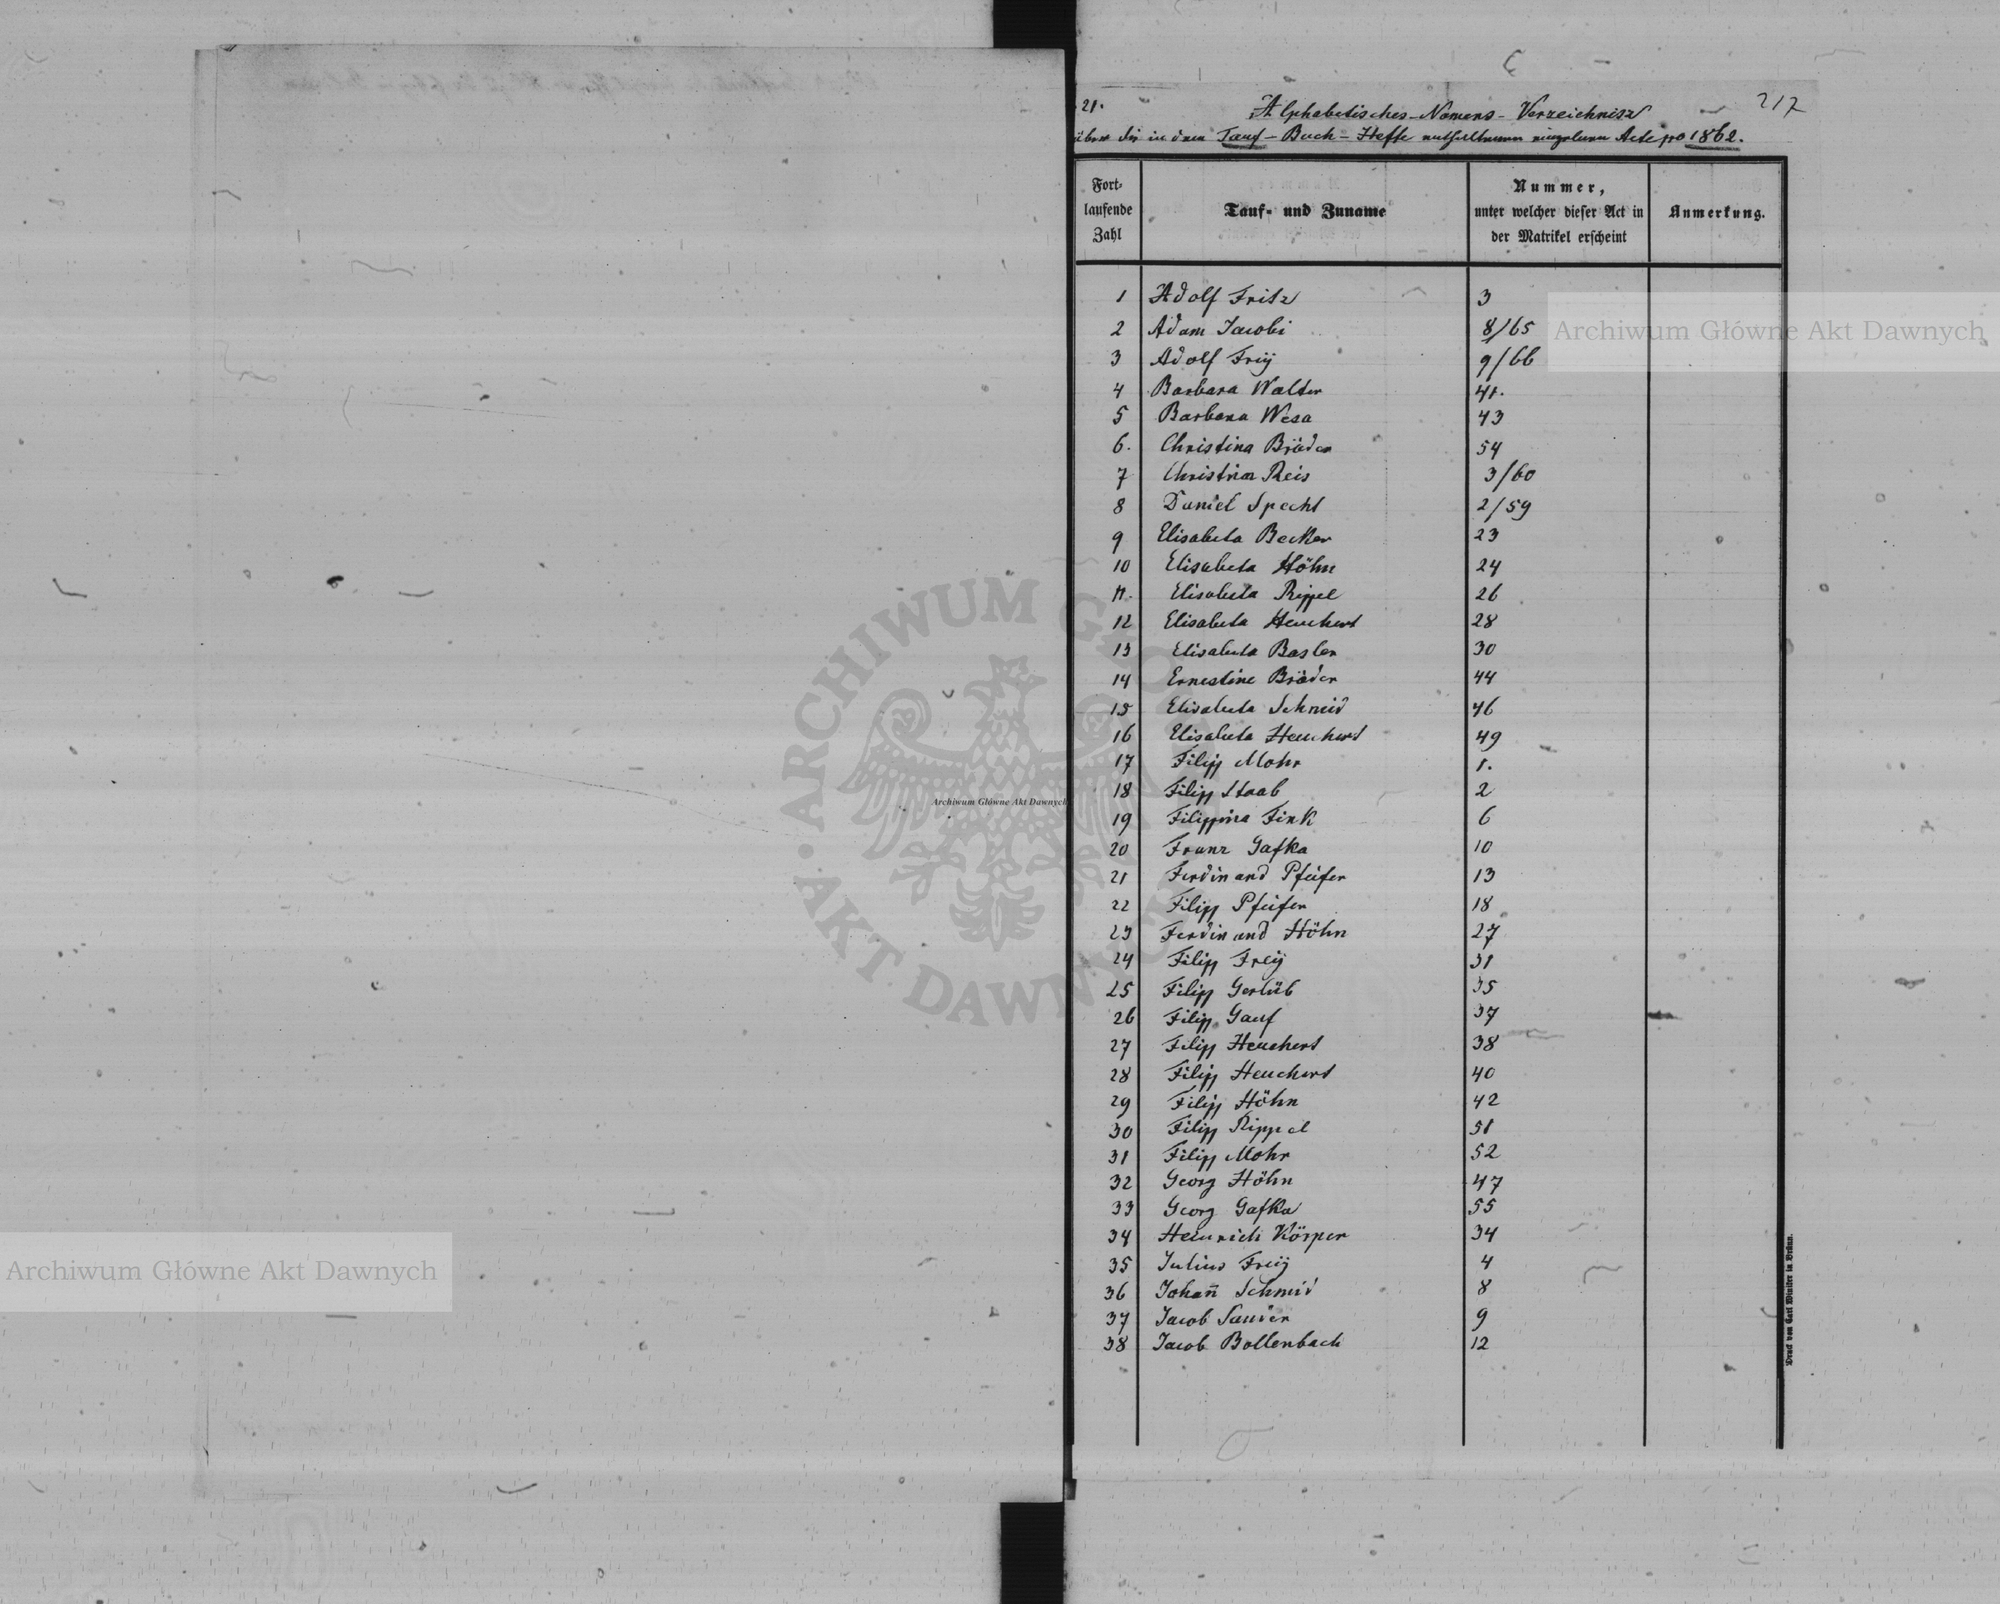 21.
217
Alphabetisches-Namens-Verzeichnisz
über die in dem Tauf-Buch-Hefte enthaltenen einzelnen Acte pro 1862.
Fort-
laufende
Zahl
Tauf- und Zuname
Nummer,
unter welcher dieser Act in
der Matrikel erscheint
Anmerkung.
1 Adolf Fritz 3
2 Adam Jacobi 8/65
3 Adolf Freÿ 9/66
4 Barbara Walter 41.
5 Barbara Wesa 43
6. Christina Bräder 54
7 Christina Reis 3/60
8 Daniel Specht 2/59
9 Elisabeta Becker 23
10 Elisabeta Höhn 24
11. Elisabeta Rippel 26
12 Elisabeta Heuchert 28
13 Elisabeta Basler 30
14 Ernestine Bräder 44
15 Elisabeta Schmid 46
16 Elisabeta Heuchert 49
17 Filipp Mohr 1.
18 Filipp Staab 2
19 Filippina Fink 6
20 Franz Gafka 10
21 Ferdinand Pfeifer 13
22 Filipp Pfeifer 18
23 Ferdinand Höhn 27
24 Filipp Freÿ 31
25 Filipp 35
26 Filipp Gauf 37
27 Filipp Heuchert 38
28 Filipp Heuchert 40
29 Filipp Höhn 42
30 Filipp Rippel 51
31 Filipp Mohr 52
32 Georg Höhn 47
33 Georg Gafka 55
34 Heinrich Körper 34
35 Julius Freÿ 4
36 Johan̄ Schmid 8
37 Jacob Sauer 9
38 Jacob Bollenbach 12
Druck von Carl Winiker in Brünn.
Archiwum Główne Akt Dawnych
Archiwum Główne Akt Dawnych
Archiwum Główne Akt Dawnych
ARCHIWUM GŁÓWNE AKT DAWNYCH